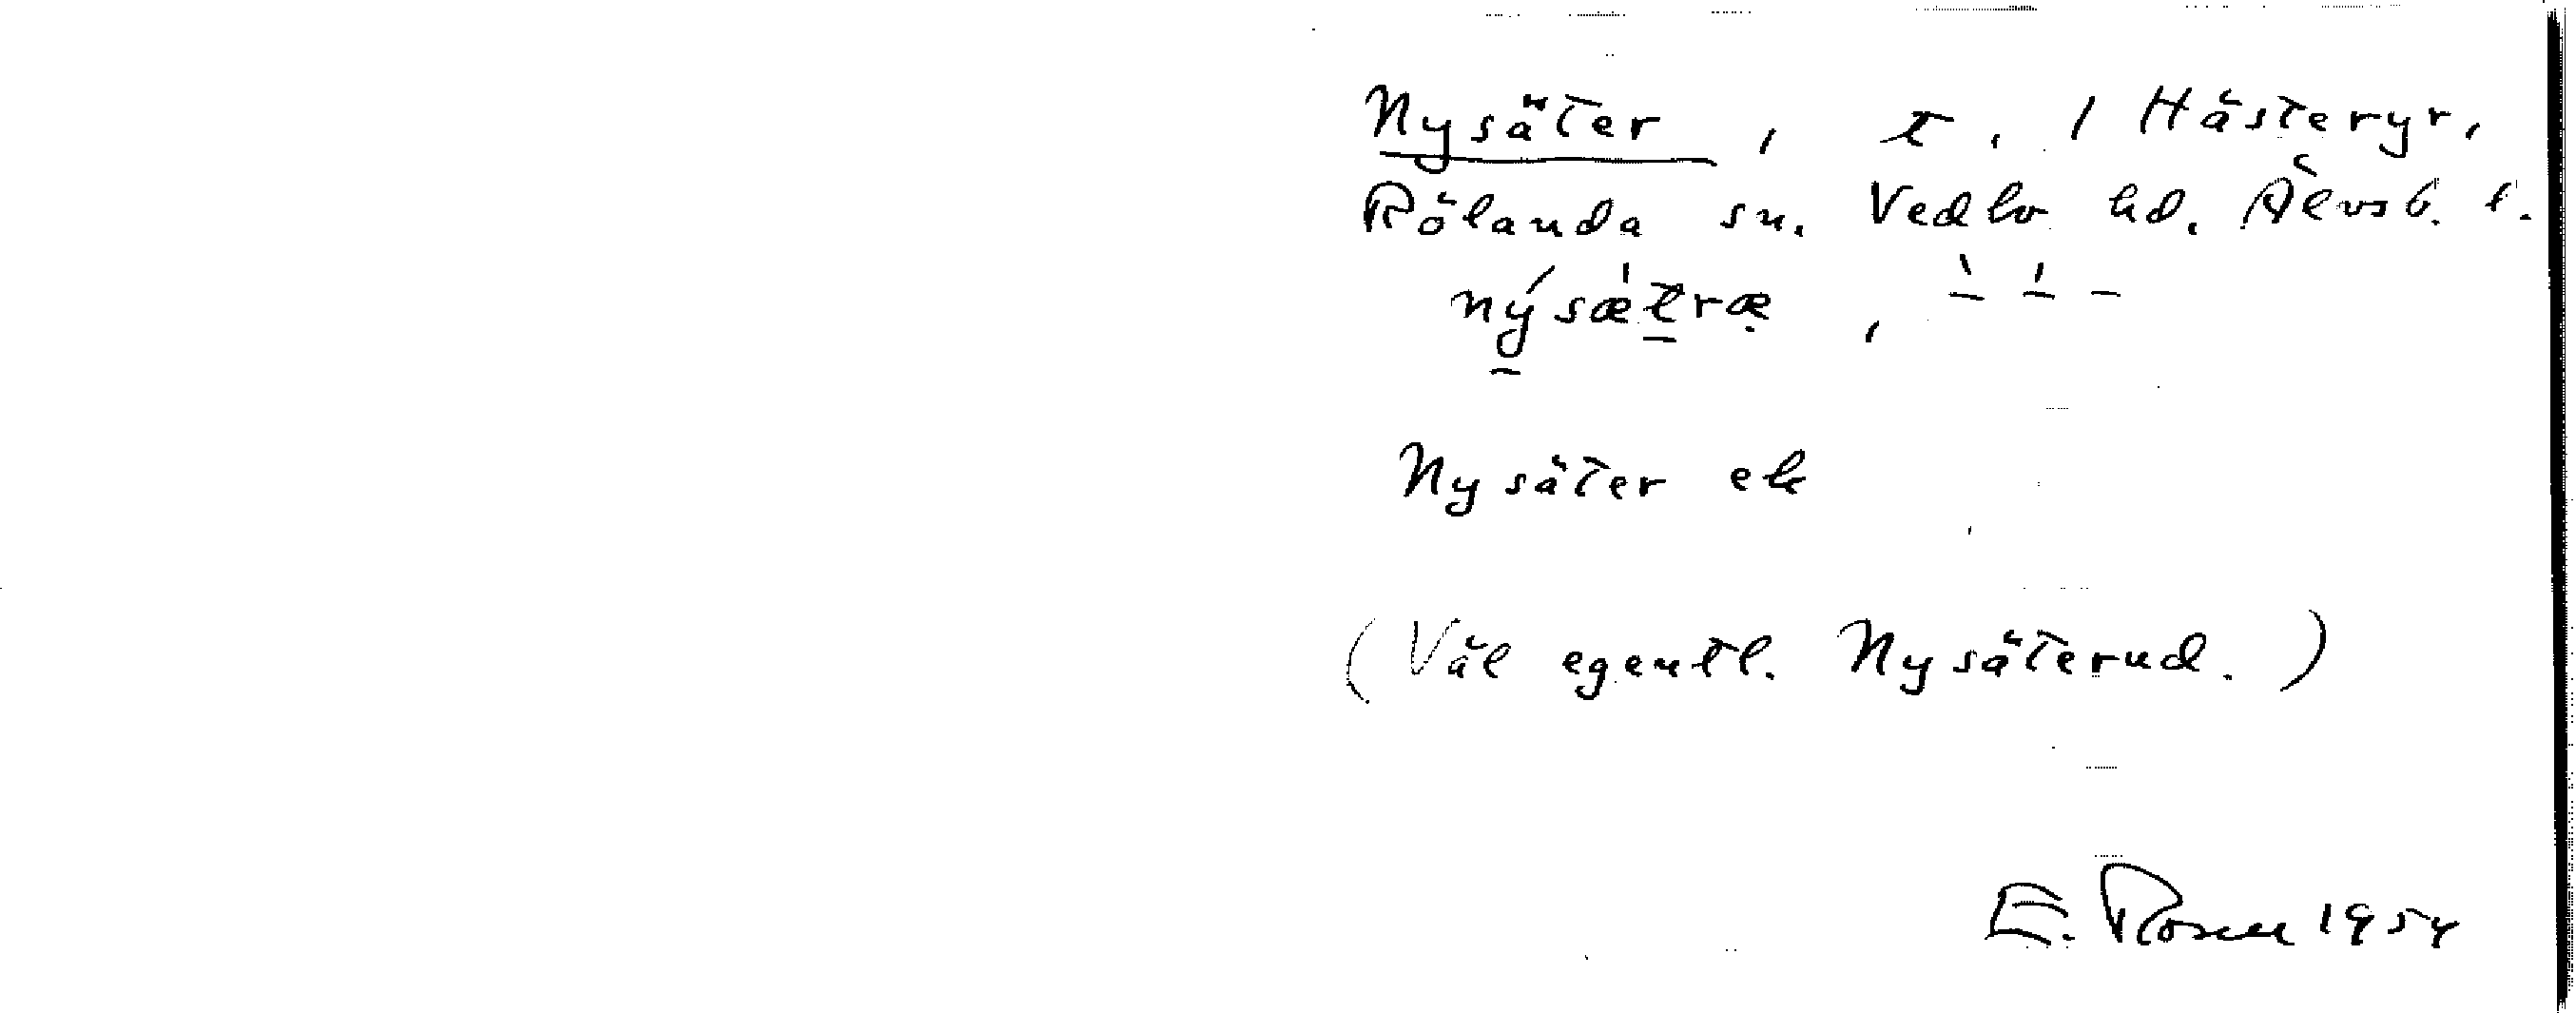 Nysäter, t. / Hästeryr,
Rölanda sn. Vedbo hd. Älvsb. l.
nýsætræ,
Nysäter ek
(Väl egentl. Nysäterud.)
E. Rosell 1954